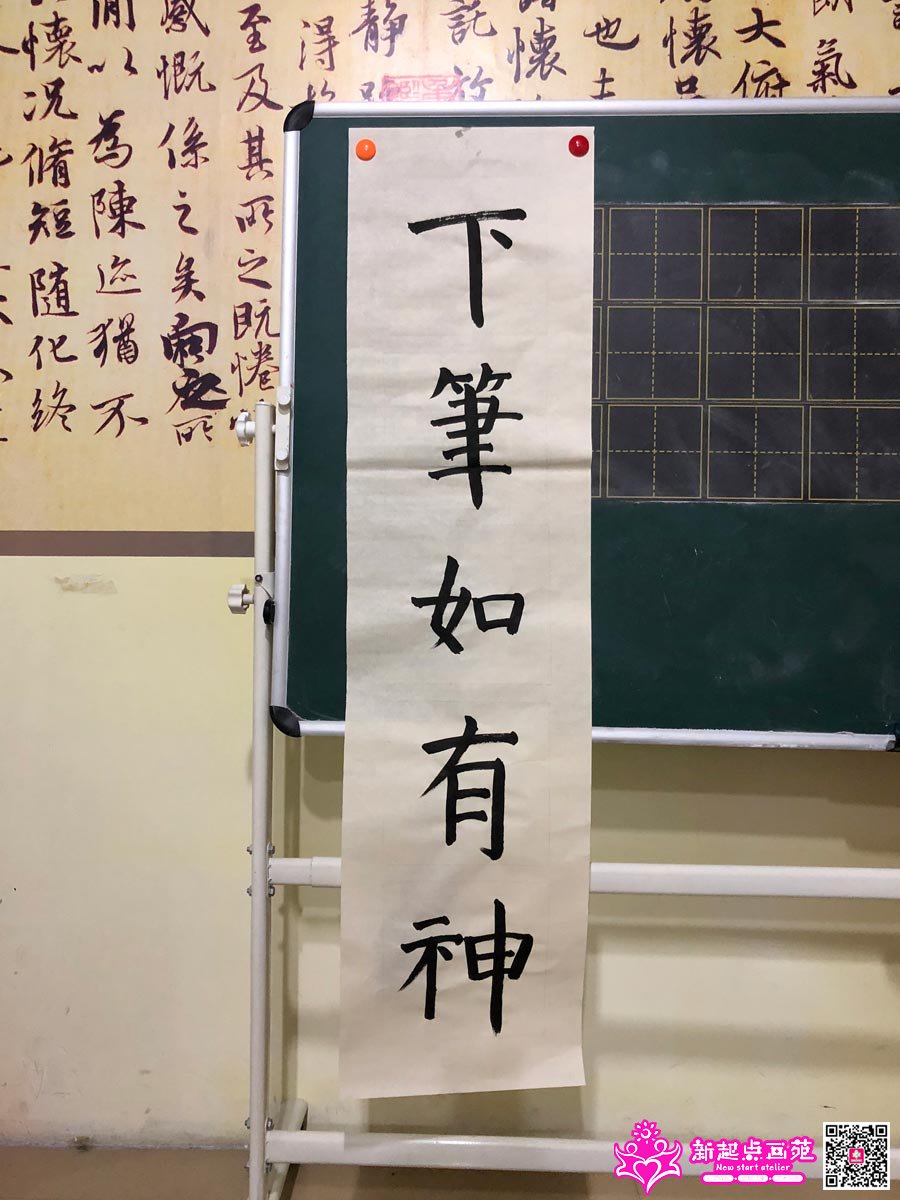 下筆如有神
氣
大俯
懷
也
懷
託放
靜
得
至及其所之既惓
感慨係之矣向之所
閒以為陳迹猶不
懷况脩短隨化終
新起点画苑
New start atelier